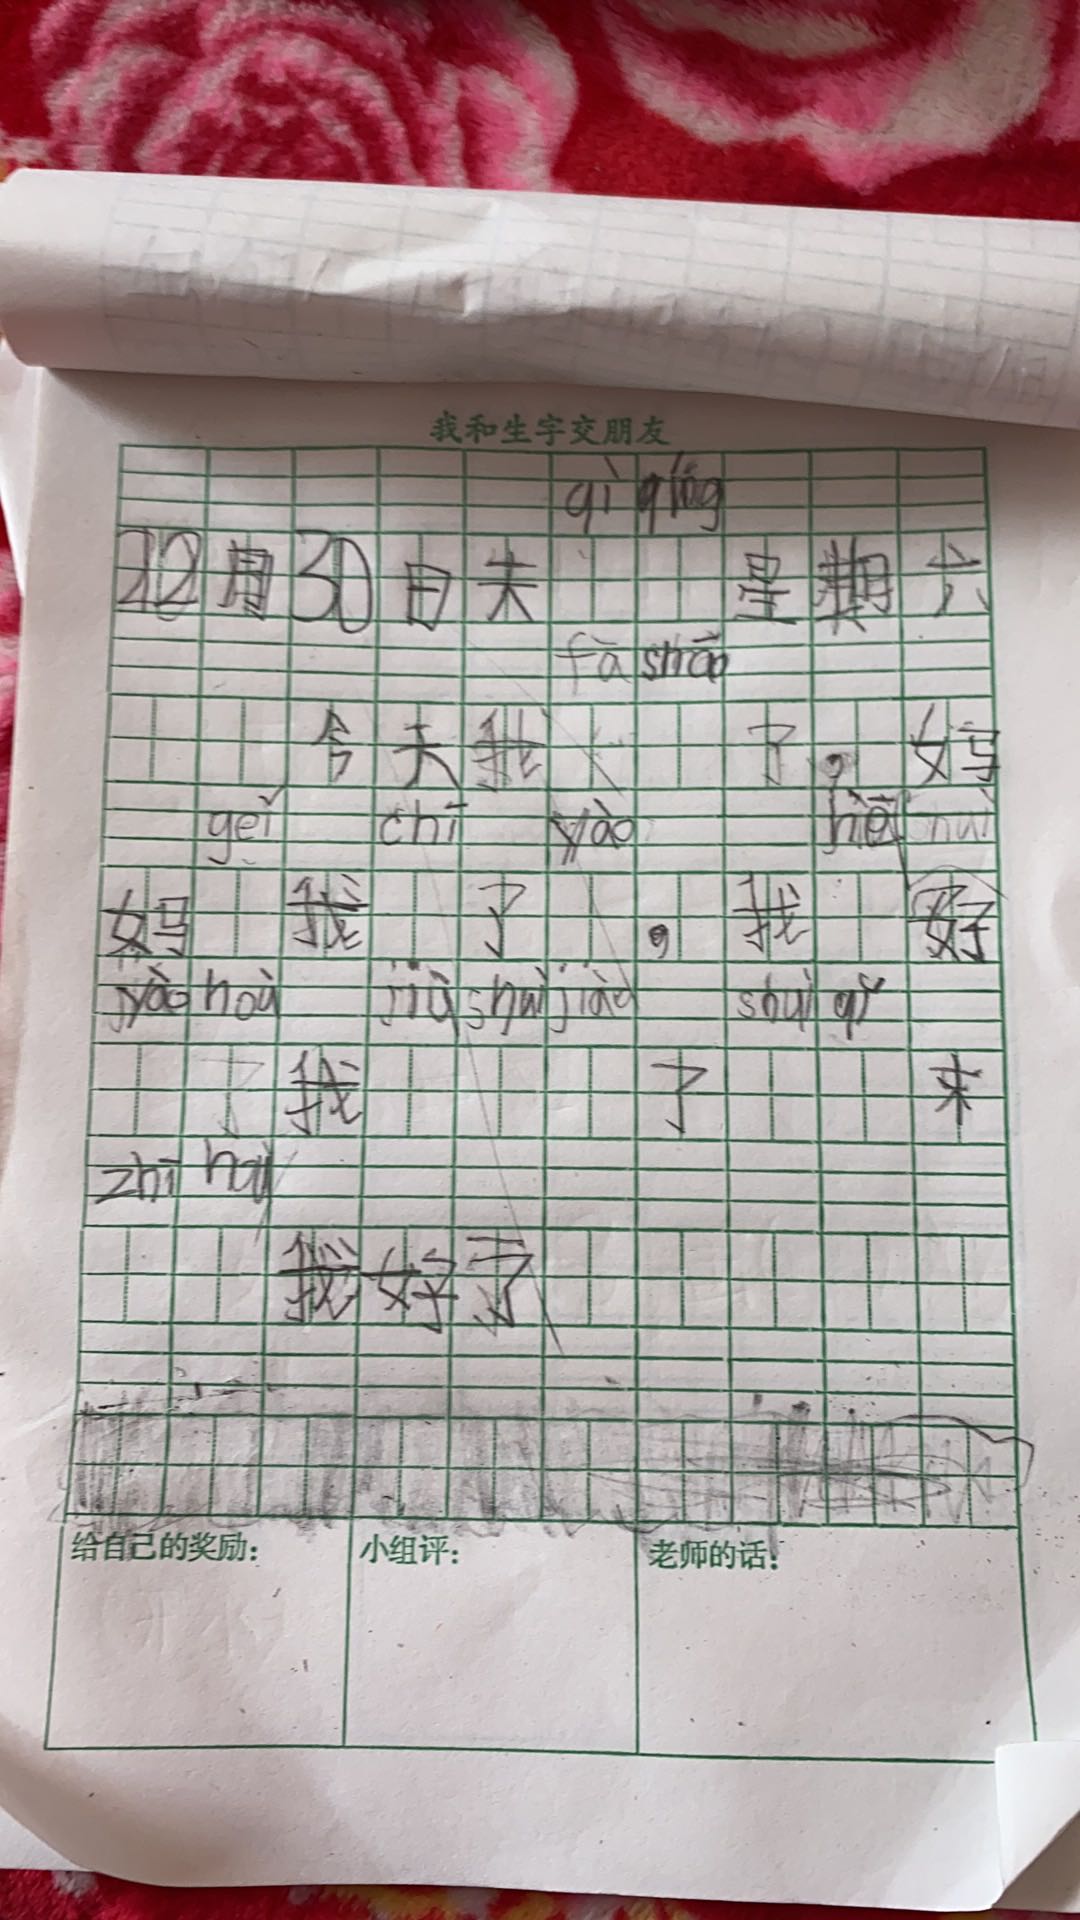 我和生字交朋友
qì qíng
12月30日天 星期六
fā shāo
今天我 了，妈
gěi chī yào hē shuì
妈 我 了 ，我 好
yào hoù jiù shuì jiào shuì qǐ
了我 了 来
zhī hou
我好了
给自己的奖励：
小组评：
老师的话：